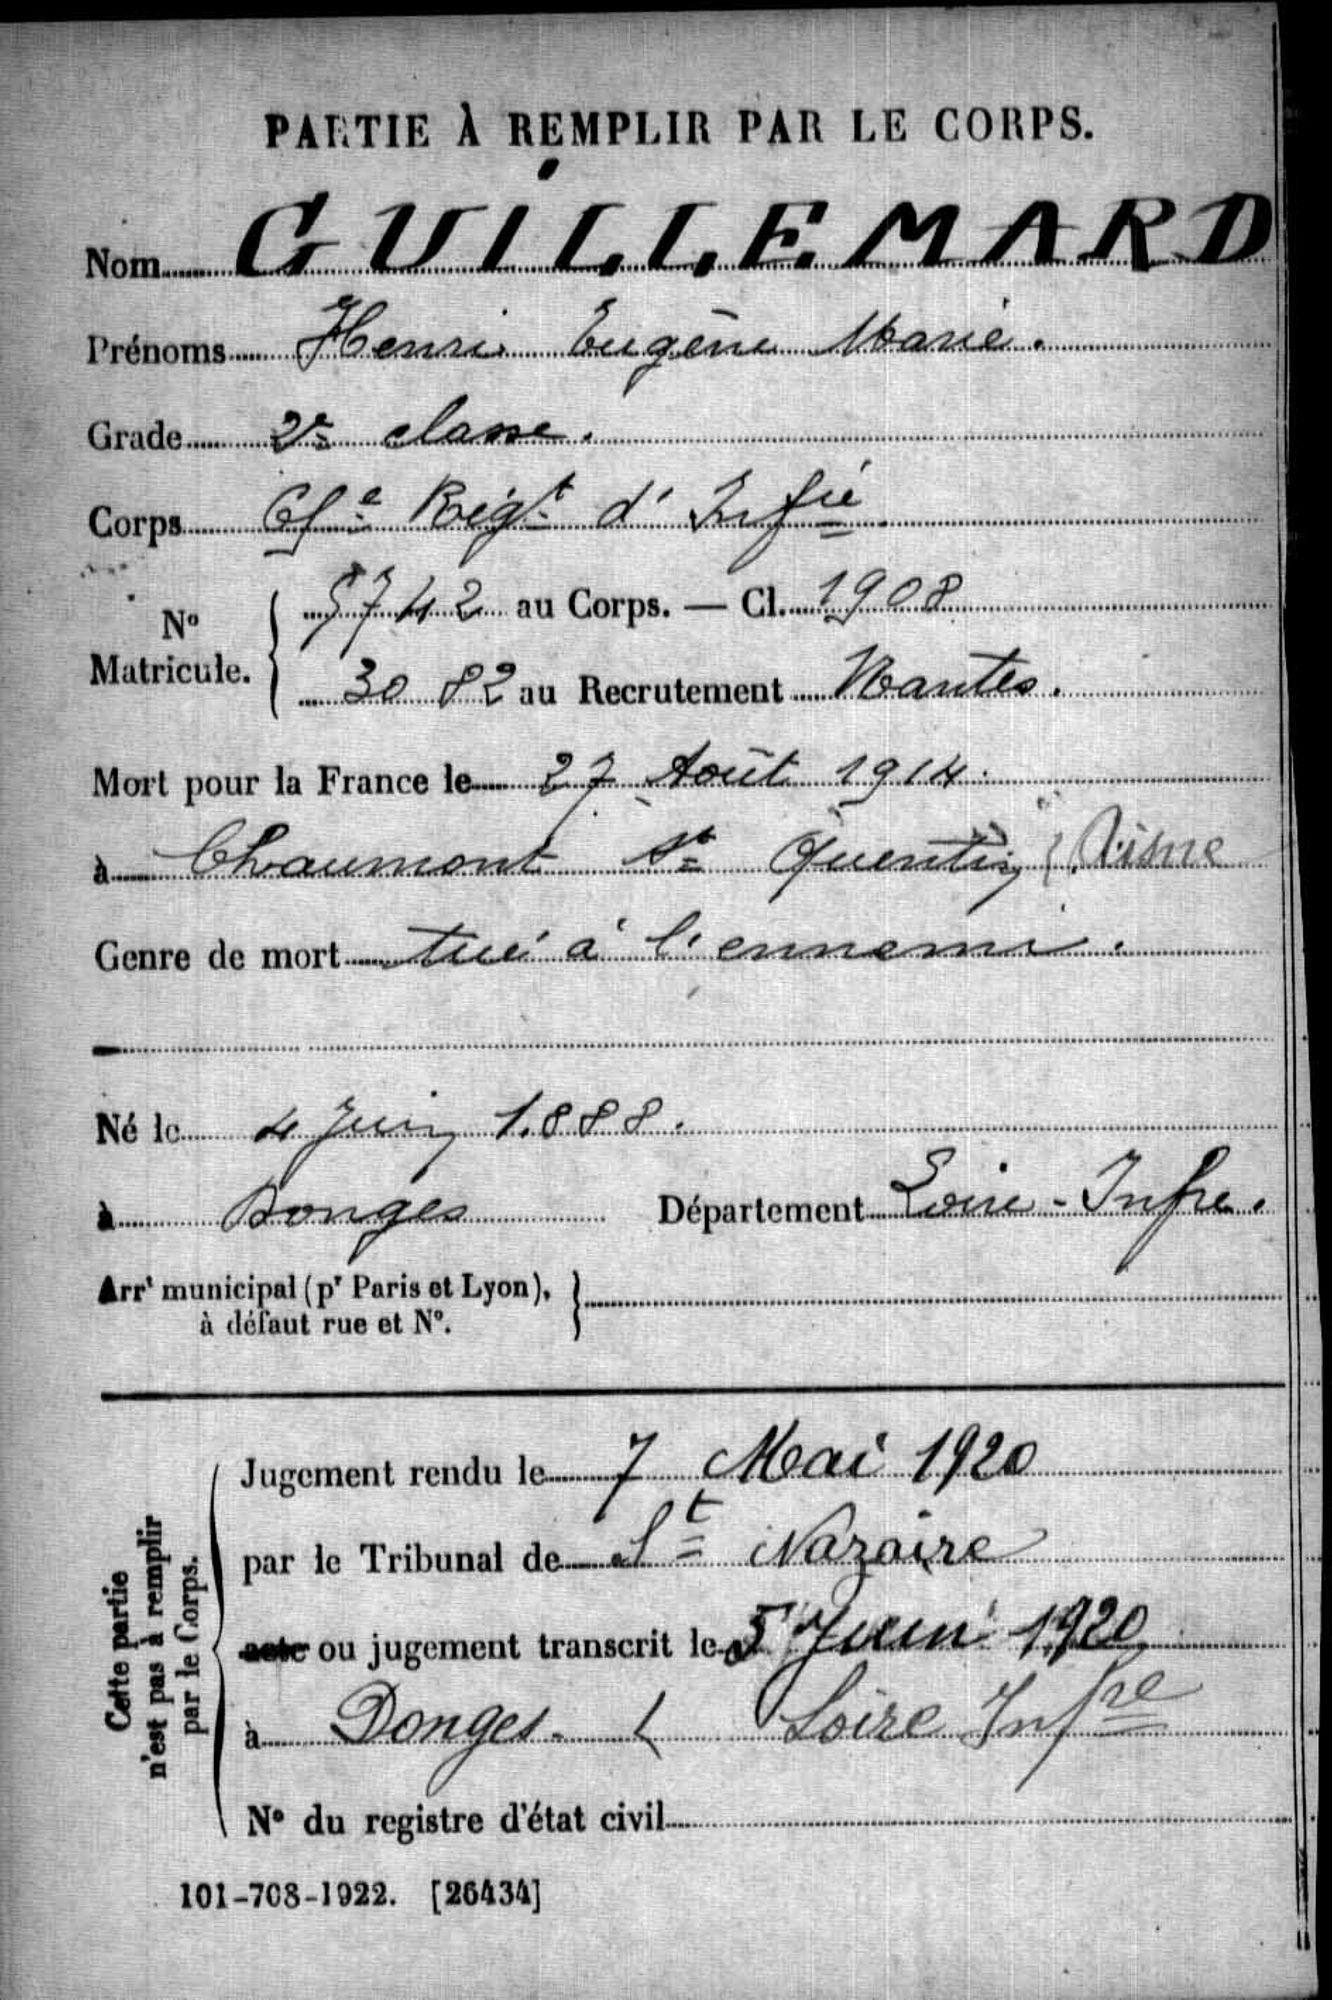 PARTIE À REMPLIR PAR LE CORPS.
Nom GUILLEMARD
Prénoms Henri Eugène Marie.
Grade 2e classe.
Corps 65e Régt d'Infie
No Matricule. { 5742 au Corps. — Cl. 1908
3082 au Recrutement Nantes.
Mort pour la France le 27 Août 1914.
à Chaumont St Quentin (Aisne
Genre de mort tué à l'ennemi.
Né le 4 Juin 1888.
à Donges Département Loire-Infre.
Arrt municipal (pr Paris et Lyon),
à défaut rue et No.
Cette partie
n'est pas à remplir
par le Corps.
Jugement rendu le 7 Mai 1920
par le Tribunal de St Nazaire
acte ou jugement transcrit le 5 Juin 1920
à Donges - ( Loire Infre
No du registre d'état civil
101-708-1922. [26434]